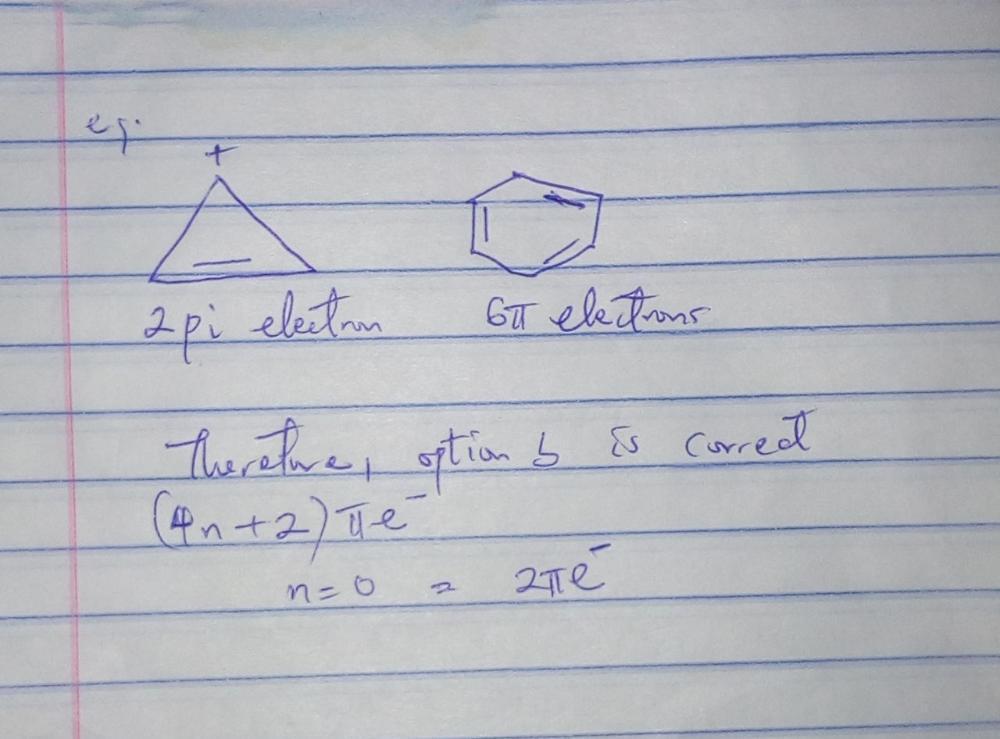 eg.
+
2pi electron 6π electrons
Therefore, option b is correct
(4n+2)πe⁻
n=0 = 2πe⁻